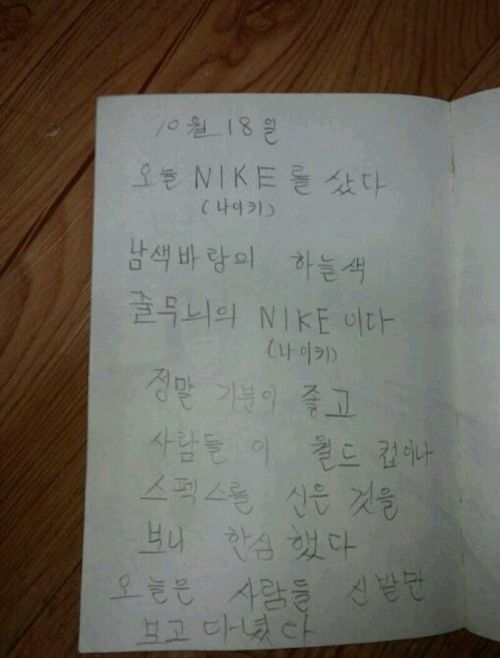 10월 18일
오늘 NIKE를 샀다
(나이키)
남색바탕의 하늘색
줄무늬의 NIKE 이다
(나이키)
정말 기분이 좋고
사람들 이 월드 컵이나
스펙스를 신은 것을
보니 한심 했다
오늘은 사람들 신발만
보고 다녔다